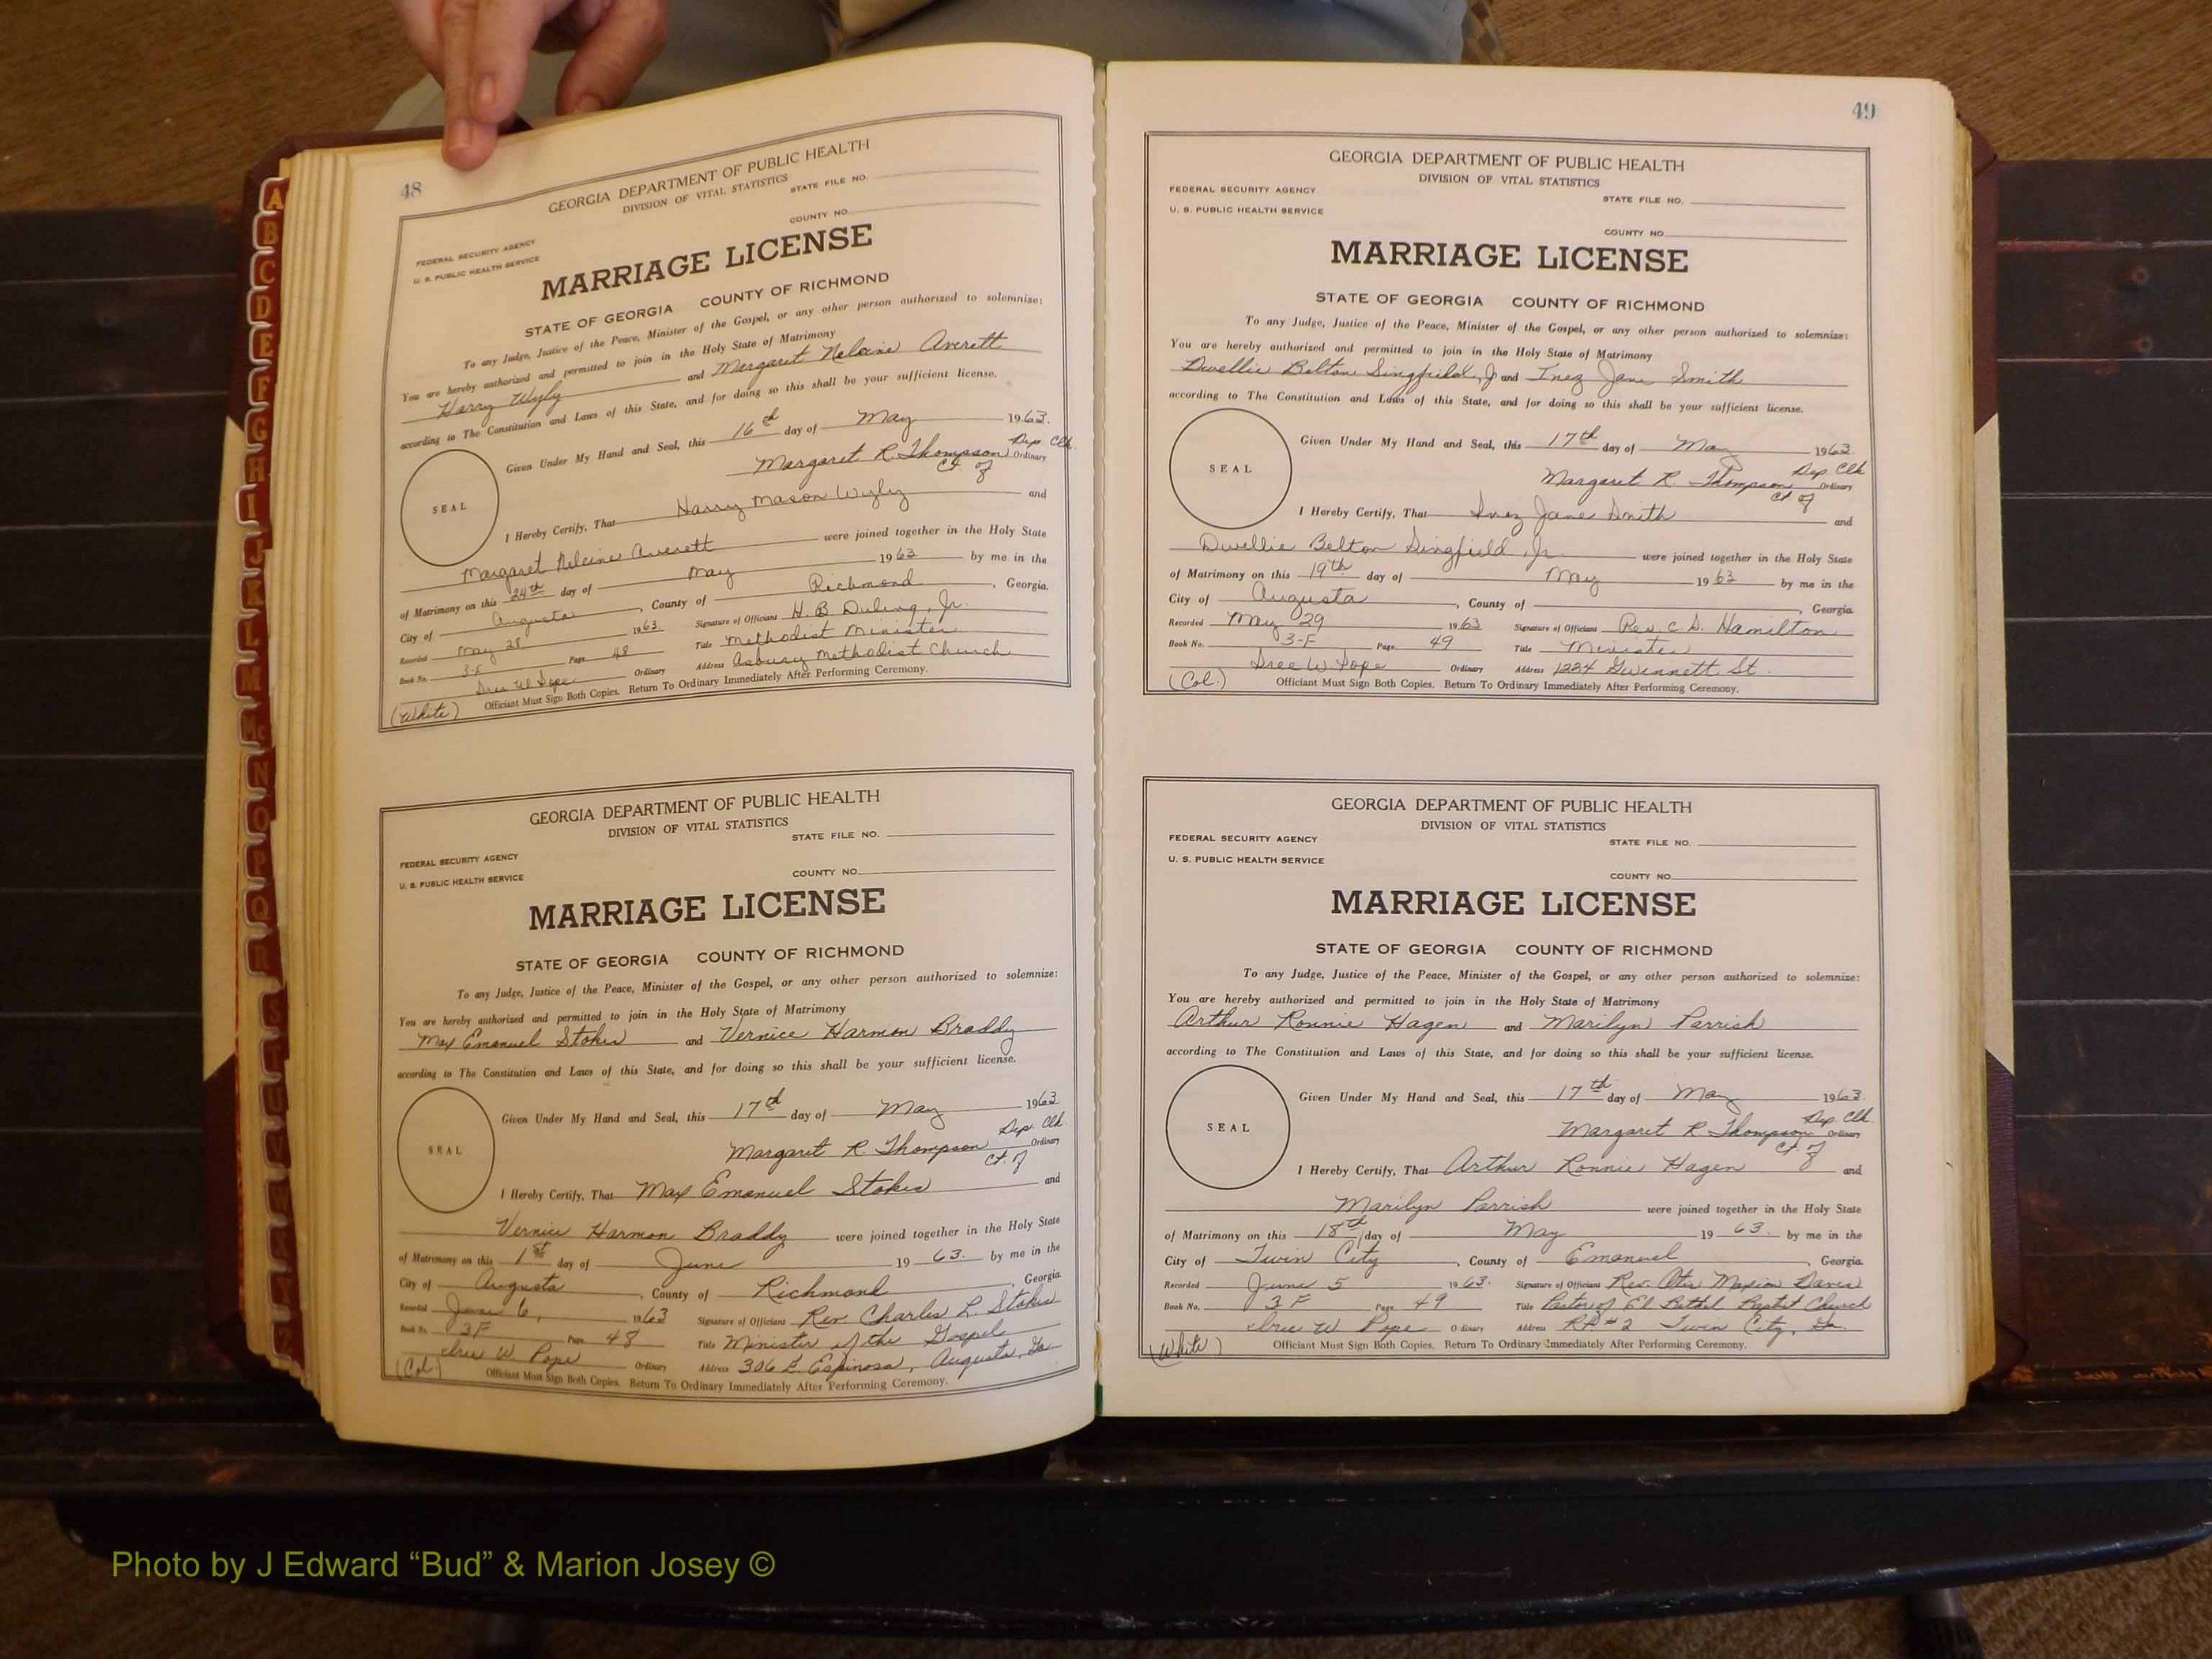 48
GEORGIA DEPARTMENT OF PUBLIC HEALTH
DIVISION OF VITAL STATISTICS
STATE FILE NO.
COUNTY NO.
FEDERAL SECURITY AGENCY
U. S. PUBLIC HEALTH SERVICE
MARRIAGE LICENSE
STATE OF GEORGIA COUNTY OF RICHMOND
To any Judge, Justice of the Peace, Minister of the Gospel, or any other person authorized to solemnize:
You are hereby authorized and permitted to join in the Holy State of Matrimony
Harry Wyly and Margaret Nelcine Averett
according to The Constitution and Laws of this State, and for doing so this shall be your sufficient license.
Given Under My Hand and Seal, this 16th day of May 1963.
Margaret R. Thompson Dep. Clk Ordinary
Ct. of
SEAL
I Hereby Certify, That Harry Mason Wyly and
Margaret Nelcine Averett were joined together in the Holy State
of Matrimony on this 24th day of May 1963 by me in the
City of Augusta, County of Richmond, Georgia.
Recorded May 28 1963 Signature of Officiant H. B. Duling, Jr.
Book No. 3-F Page 48 Title Methodist Minister
W Pope Ordinary Address Asbury Methodist Church
(White) Officiant Must Sign Both Copies. Return To Ordinary Immediately After Performing Ceremony.
GEORGIA DEPARTMENT OF PUBLIC HEALTH
DIVISION OF VITAL STATISTICS
STATE FILE NO.
FEDERAL SECURITY AGENCY
U. S. PUBLIC HEALTH SERVICE
COUNTY NO.
MARRIAGE LICENSE
STATE OF GEORGIA COUNTY OF RICHMOND
To any Judge, Justice of the Peace, Minister of the Gospel, or any other person authorized to solemnize:
You are hereby authorized and permitted to join in the Holy State of Matrimony
Max Emanuel Stokes and Vernice Harmon Braddy
according to The Constitution and Laws of this State, and for doing so this shall be your sufficient license.
Given Under My Hand and Seal, this 17th day of May 1963.
Margaret R. Thompson Dep. Clk. Ordinary
Ct. of
SEAL
I Hereby Certify, That Max Emanuel Stokes and
Vernice Harmon Braddy were joined together in the Holy State
of Matrimony on this 1st day of June 1963. by me in the
City of Augusta, County of Richmond, Georgia
Recorded June 6, 1963 Signature of Officiant Rev Charles L. Stokes
Book No. 3F Page 48 Title Minister of the Gospel
W. Pope Ordinary Address 306 E. Espinosa, Augusta, Ga
(Col.) Officiant Must Sign Both Copies. Return To Ordinary Immediately After Performing Ceremony.
49
GEORGIA DEPARTMENT OF PUBLIC HEALTH
DIVISION OF VITAL STATISTICS
FEDERAL SECURITY AGENCY
STATE FILE NO.
U. S. PUBLIC HEALTH SERVICE
COUNTY NO.
MARRIAGE LICENSE
STATE OF GEORGIA COUNTY OF RICHMOND
To any Judge, Justice of the Peace, Minister of the Gospel, or any other person authorized to solemnize:
You are hereby authorized and permitted to join in the Holy State of Matrimony
Dwellie Belton Singfield, Jr and Inez Jane Smith
according to The Constitution and Laws of this State, and for doing so this shall be your sufficient license.
Given Under My Hand and Seal, this 17th day of May 1963.
Margaret R. Thompson Dep. Clk Ordinary
Ct. of
SEAL
I Hereby Certify, That Inez Jane Smith and
Dwellie Belton Singfield, Jr. were joined together in the Holy State
of Matrimony on this 19th day of May 1963 by me in the
City of Augusta, County of , Georgia
Recorded May 29 1963 Signature of Officiant Rev. C. S. Hamilton
Book No. 3-F Page 49 Title Minister
W Pope Ordinary Address 1234 Gwinnett St.
(Col.) Officiant Must Sign Both Copies. Return To Ordinary Immediately After Performing Ceremony.
GEORGIA DEPARTMENT OF PUBLIC HEALTH
DIVISION OF VITAL STATISTICS
FEDERAL SECURITY AGENCY
STATE FILE NO.
U. S. PUBLIC HEALTH SERVICE
COUNTY NO.
MARRIAGE LICENSE
STATE OF GEORGIA COUNTY OF RICHMOND
To any Judge, Justice of the Peace, Minister of the Gospel, or any other person authorized to solemnize:
You are hereby authorized and permitted to join in the Holy State of Matrimony
Arthur Ronnie Hagen and Marilyn Parrish
according to The Constitution and Laws of this State, and for doing so this shall be your sufficient license.
Given Under My Hand and Seal, this 17th day of May 1963.
Margaret R. Thompson Dep. Clk. Ordinary
Ct. of
SEAL
I Hereby Certify, That Arthur Ronnie Hagen and
Marilyn Parrish were joined together in the Holy State
of Matrimony on this 18th day of May 1963. by me in the
City of Twin City, County of Emanuel, Georgia
Recorded June 5 1963. Signature of Officiant Rev. Otis Maxion Davis
Book No. 3F Page 49 Title Pastor of El Bethel Baptist Church
W Pope Ordinary Address Rt #2 Twin City, Ga.
(White) Officiant Must Sign Both Copies. Return To Ordinary Immediately After Performing Ceremony.
A
B
C
D
E
F
G
H
I
J
K
L
M
Mc
N
O
P
Q
R
S
T
U
Photo by J Edward “Bud” & Marion Josey ©